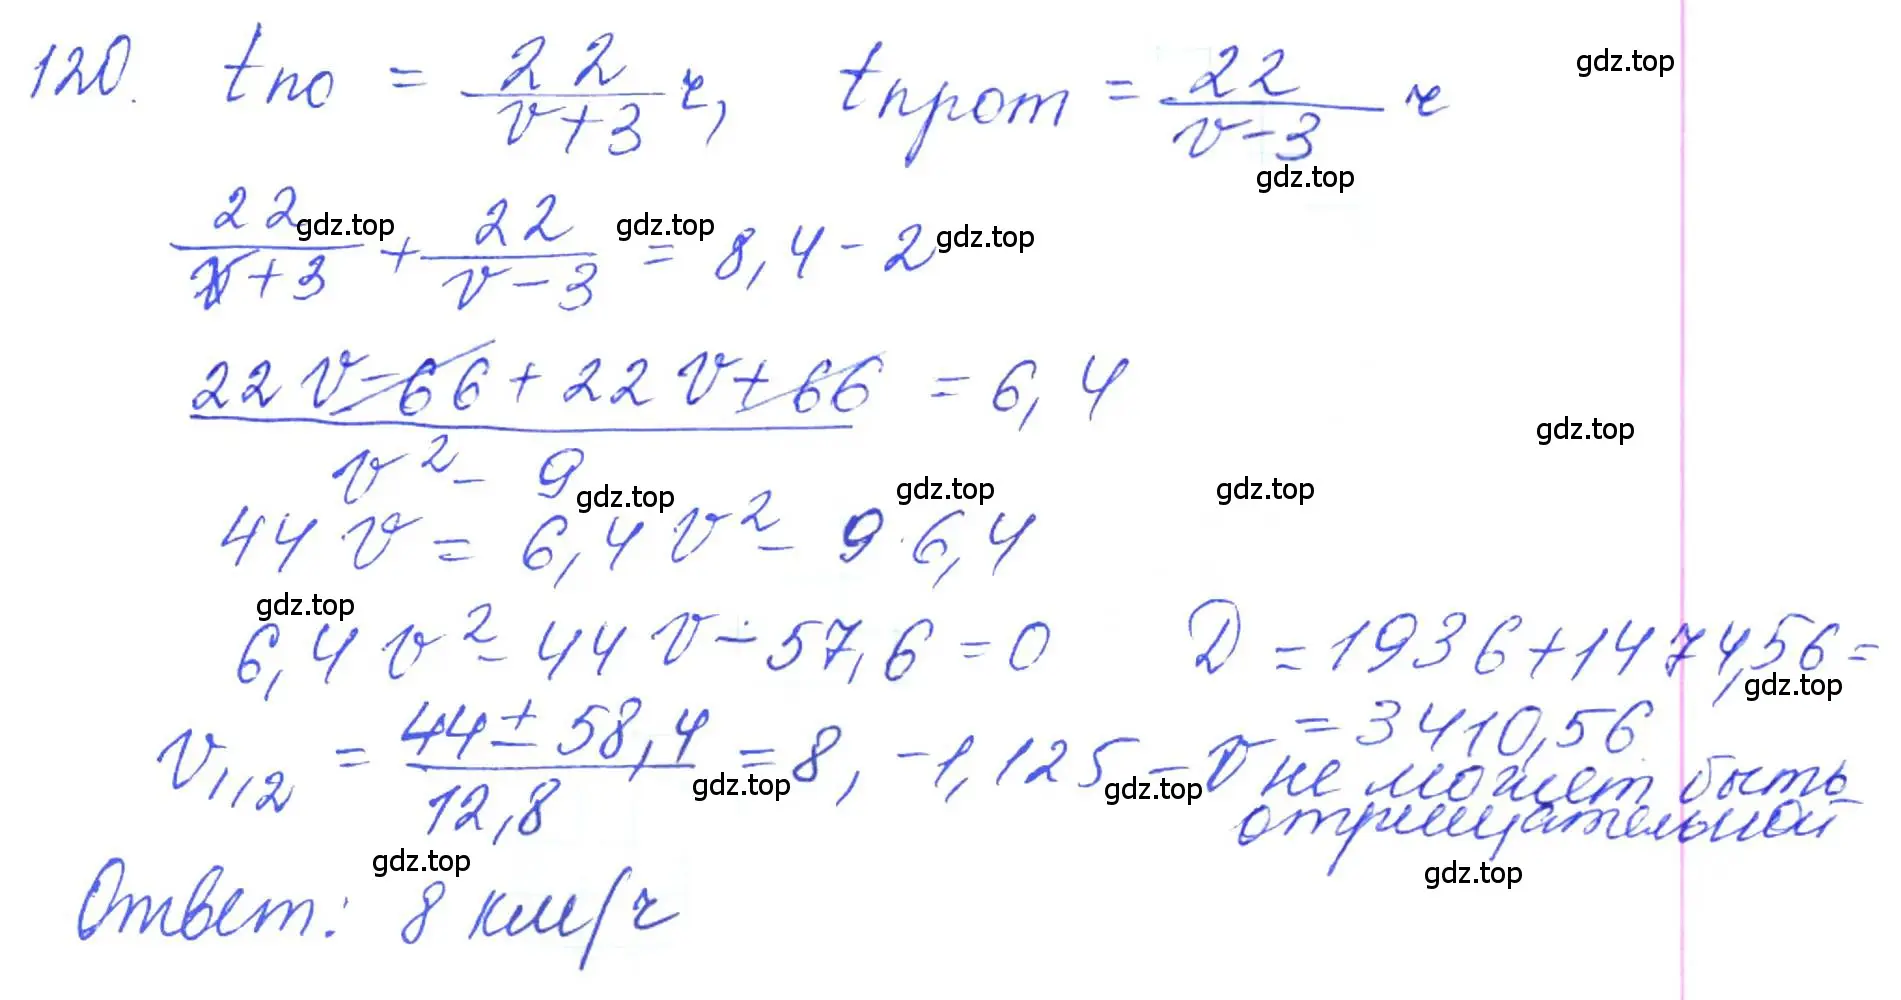 120. tпо = 22/(v+3) ч, tпрот = 22/(v-3) ч
gdz.top
gdz.top
22/(v+3) + 22/(v-3) = 8,4 - 2
gdz.top gdz.top gdz.top
(22v - 66 + 22v + 66)/(v² - 9) = 6,4
gdz.top
gdz.top gdz.top gdz.top
44v = 6,4v² - 9·6,4
gdz.top
6,4v² - 44v - 57,6 = 0 D = 1936 + 1474,56 =
gdz.top
= 3410,56
v1,2 = (44 ± 58,4)/12,8 = 8, -1,125 - v не может быть
отрицательной
gdz.top gdz.top
gdz.top gdz.top
Ответ: 8 км/ч